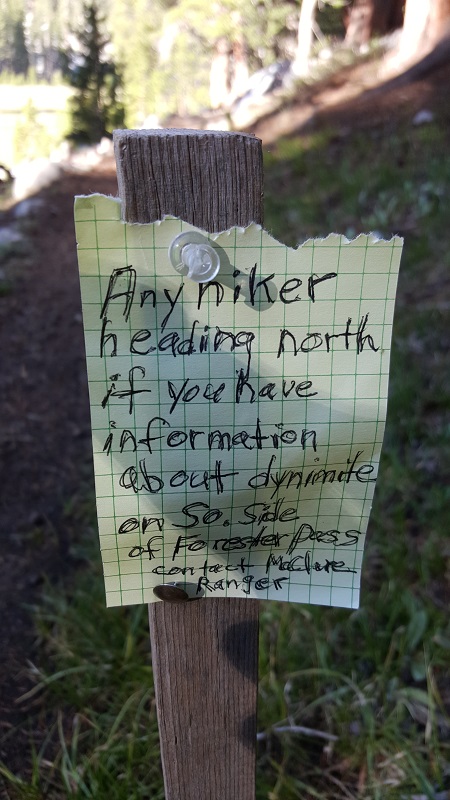 Any hiker
heading north
if you have
information
about dynimite
on So. Side
of Forester Pass
contact McClure
Ranger